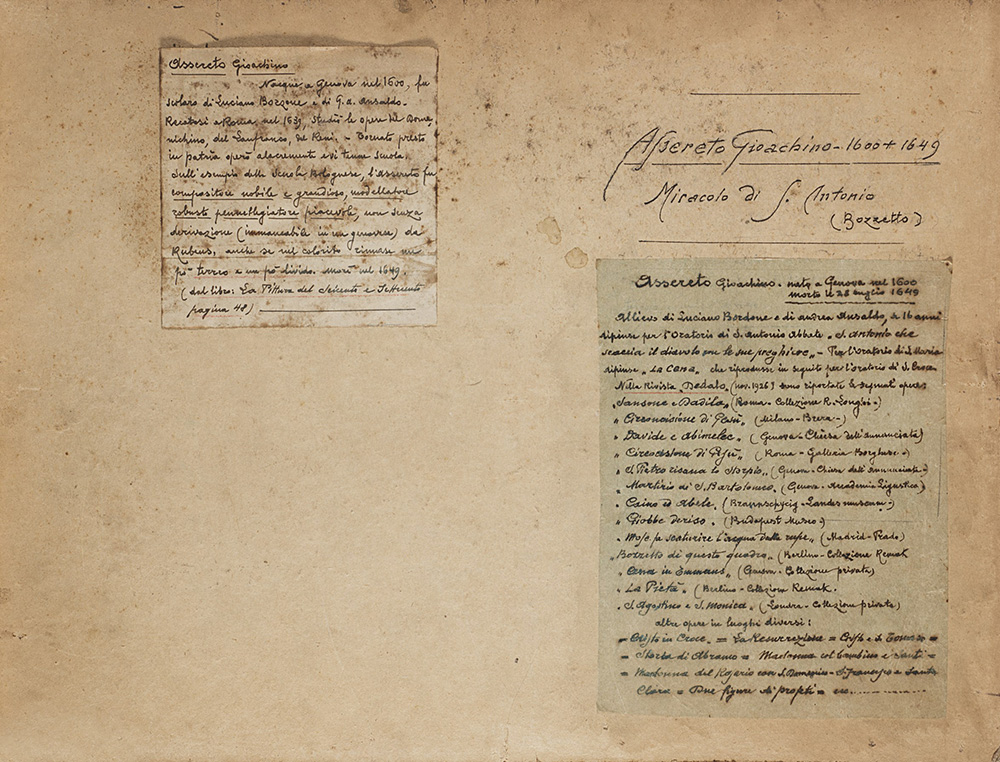 Assereto Gioachino
Nacque a Genova nel 1600, fu
scolaro di Luciano Borzone e di G. A. Ansaldo.
Recatosi a Roma, nel 1639, studiò le opere del Dome
nichino, del Lanfranco, del Reni. - Tornato presto
in patria operò alacremente e vi tenne scuola.
Sull'esempio della Scuola Bolognese, l'Assereto fu
compositore nobile e grandioso, modellatore
robusto pennellegiatore piacevole, non senza
derivazione (immancabile in un genovese) da
Rubens, anche se nel colorito rimase un
pò terreo e un pò livido. Morì nel 1649.
(dal libro: La Pittura del Seicento e Settecento
pagina 48)
Assereto Gioachino - 1600 + 1649
Miracolo di S. Antonio
(Bozzetto)
Assereto Gioachino. nato a Genova nel 1600
morto il 28 luglio 1649
Allievo di Luciano Bordone e di Andrea Ansaldo, a 16 anni
dipinse per l'Oratorio di S. Antonio Abbate "S. Antonio che
scaccia il diavolo con le sue preghiere" - Per l'oratorio di S. Maria
dipinse "La Cena" che riprodusse in seguito per l'oratorio di S. Croce.
Nella Rivista "Dedalo" (nov. 1926) sono riportate le seguenti opere:
"Sansone e Dadila" (Roma - Collezione R. Longhi -)
" Circoncisione di Gesù" (Milano - Brera -)
" Davide e Abimelec. (Genova - Chiesa dell'Annunciata)
" Circoncisione di Gesù" (Roma - Galleria Borghese -)
" S. Pietro risana lo storpio" (Genova - Chiesa dell'Annunciata -)
" Martirio di S. Bartolomeo. (Genova - Accademia Ligustica)
" Caino ed Abele. (Landesmuseum -)
" Giobbe deriso. (Budapest Museo)
" Mosè fa scaturire l'acqua dalla rupe" (Madrid - Prado)
"Bozzetto di questo quadro" (Berlino - Collezione Remak
" Cena in Emmaus" (Genova - Collezione privata)
" La Pietà" (Berlino - Collezione Remak.
" S. Agostino e S. Monica" (Londra - Collezione privata)
altre opere in luoghi diversi:
= Cristo in Croce. = La Resurrezione = Cristo e S. Tomaso =
= Storia di Abramo = Madonna col bambino e santi =
= Madonna del Rosario con S. Domenico - S. Francesco e Santa
Clara = Due figure di profeti = ec..........